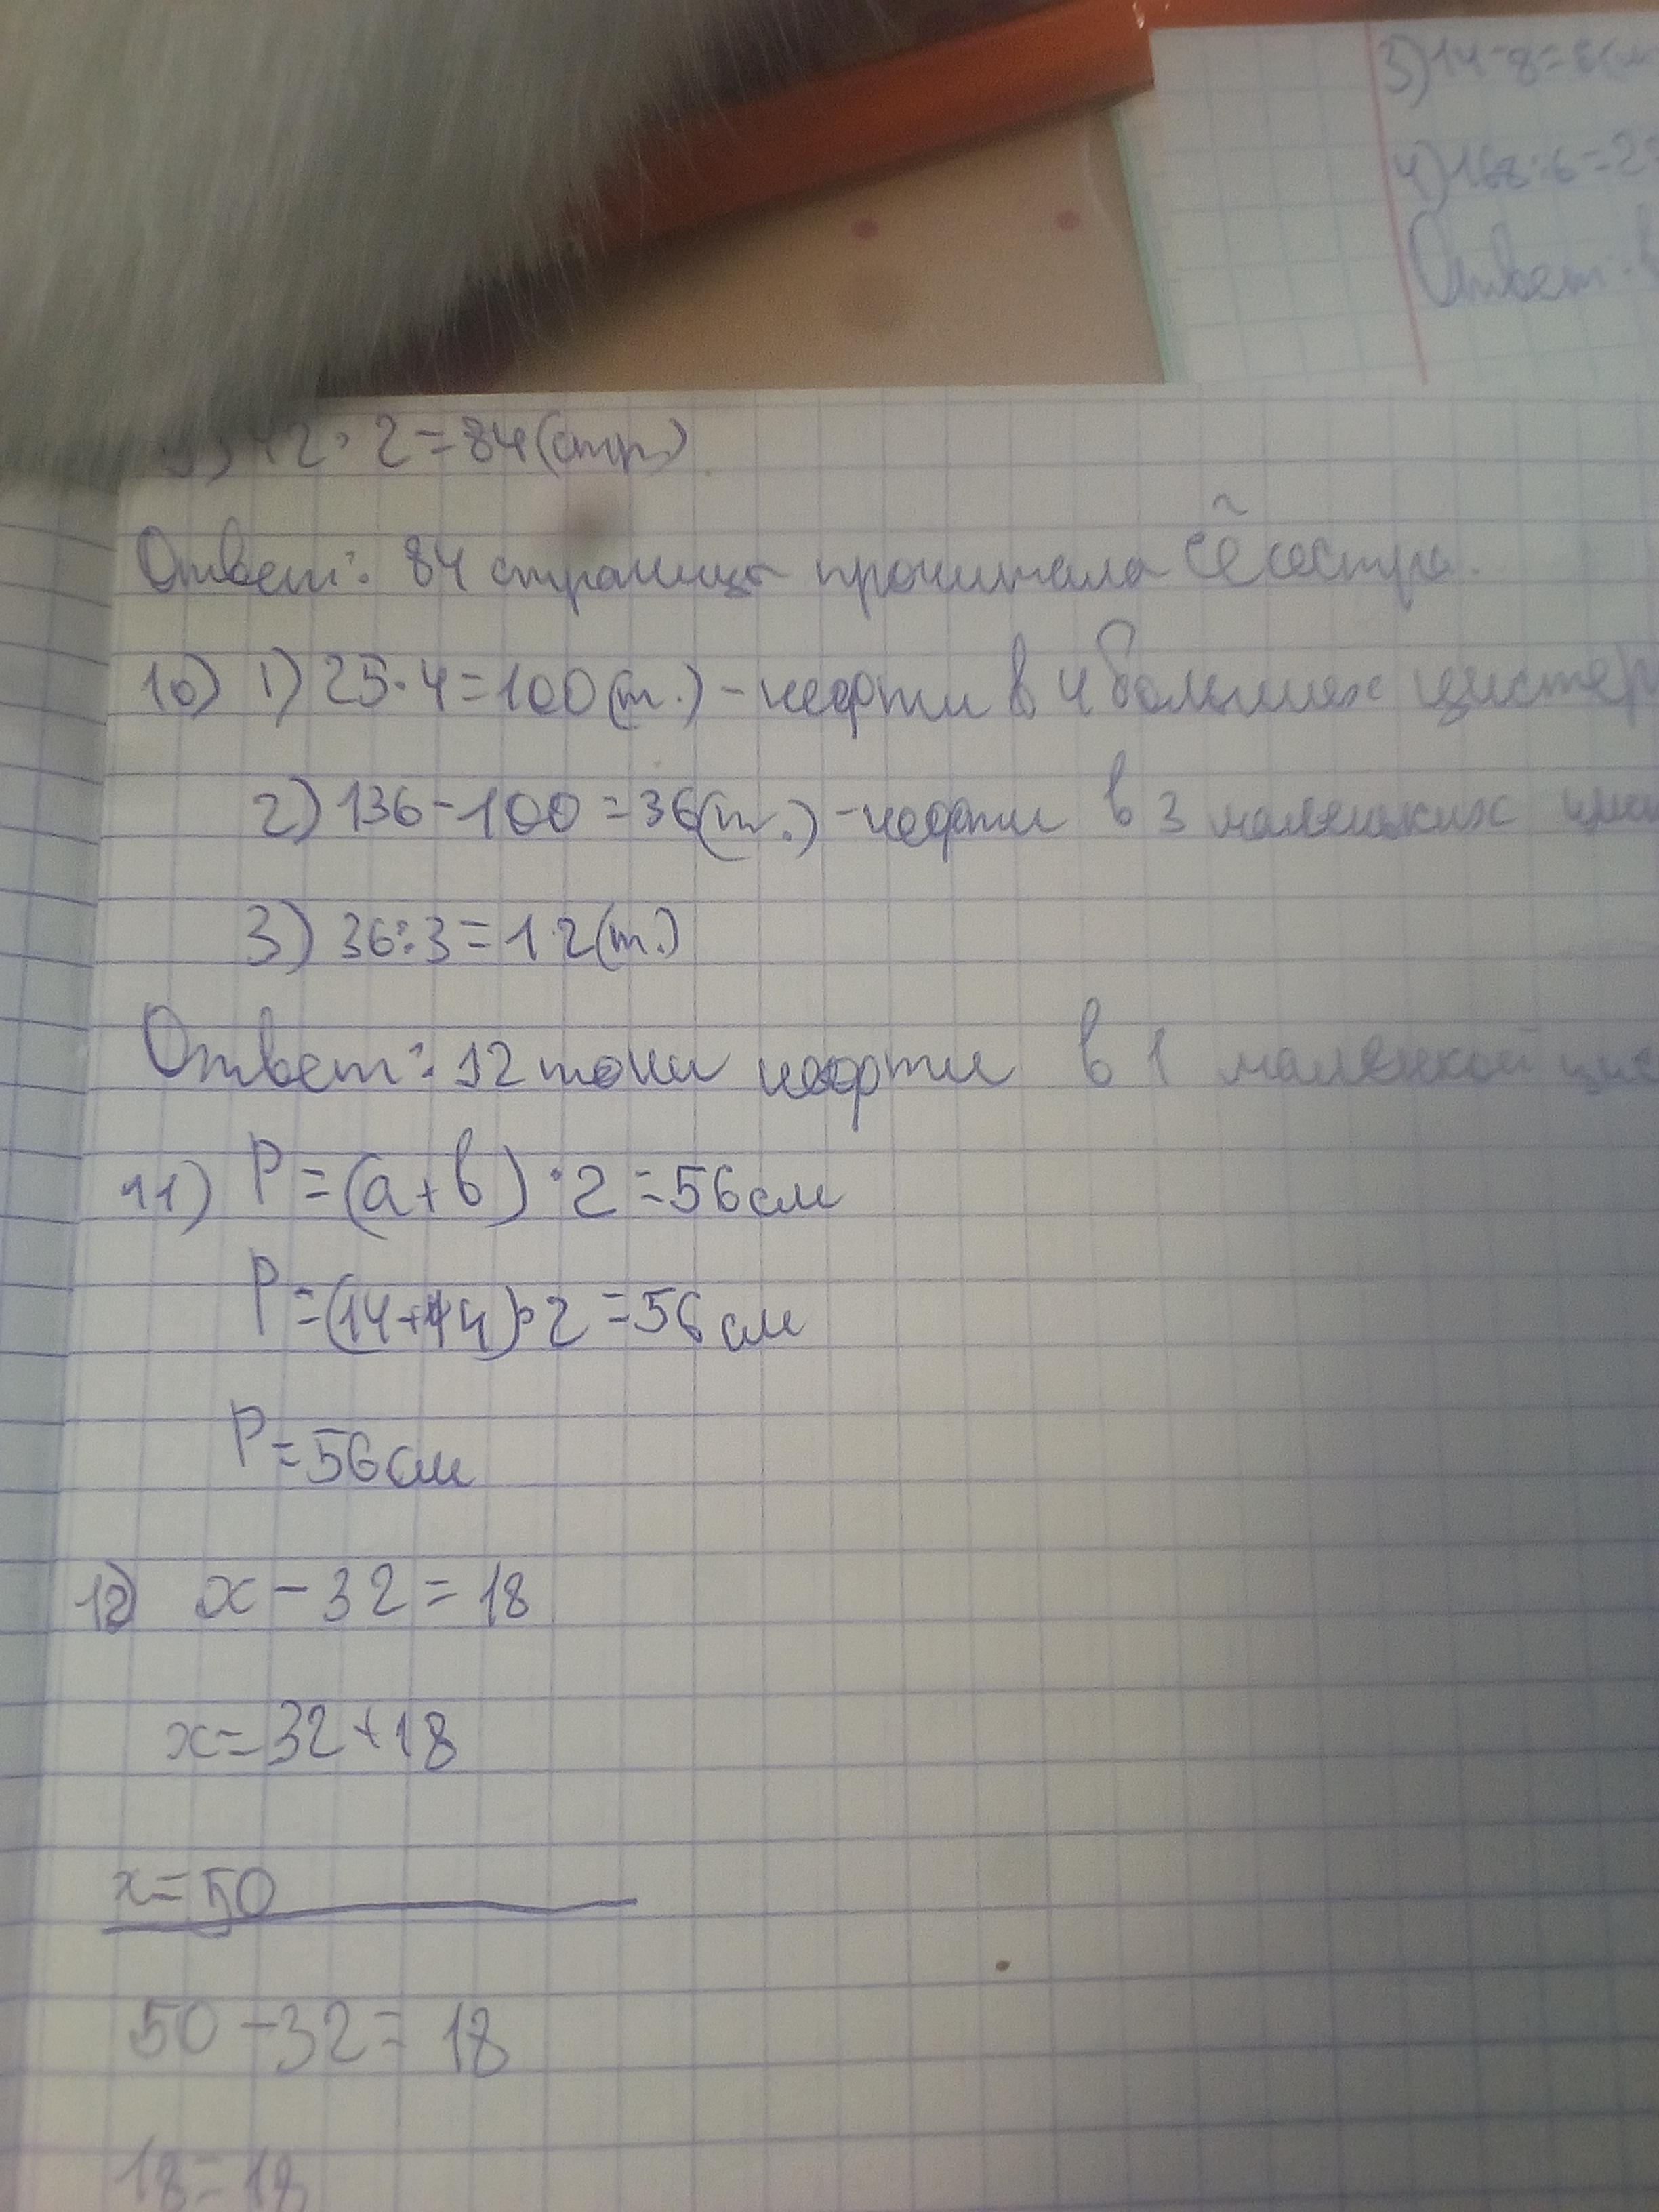 3) 14-8=6(м
4) 168:6=2
Ответ:
42·2=84(стр.)
Ответ: 84 страницы прочитала её сестра.
10) 1) 25·4=100(т.)-нефти в 4 больших цистер
2) 136-100=36(т.)-нефти в 3 маленьких цис
3) 36:3=12(т.)
Ответ: 12 тонн нефти в 1 маленькой цис
11) P=(a+b)·2=56см
P=(14+14)·2=56см
P=56см
12) x-32=18
x=32+18
x=50
50-32=18
18=18